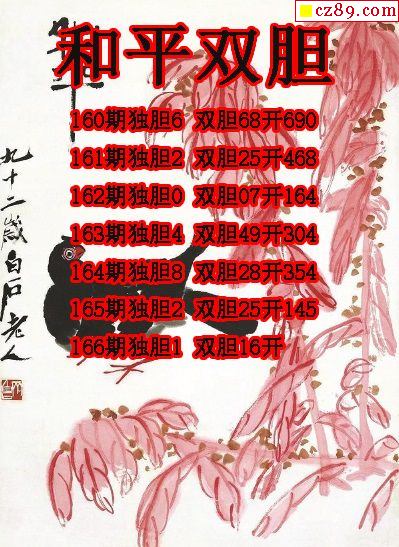 cz89.com
和平双胆
160期独胆6 双胆68开690
161期独胆2 双胆25开468
162期独胆0 双胆07开164
163期独胆4 双胆49开304
164期独胆8 双胆28开354
165期独胆2 双胆25开145
166期独胆1 双胆16开
九十二岁白石老人